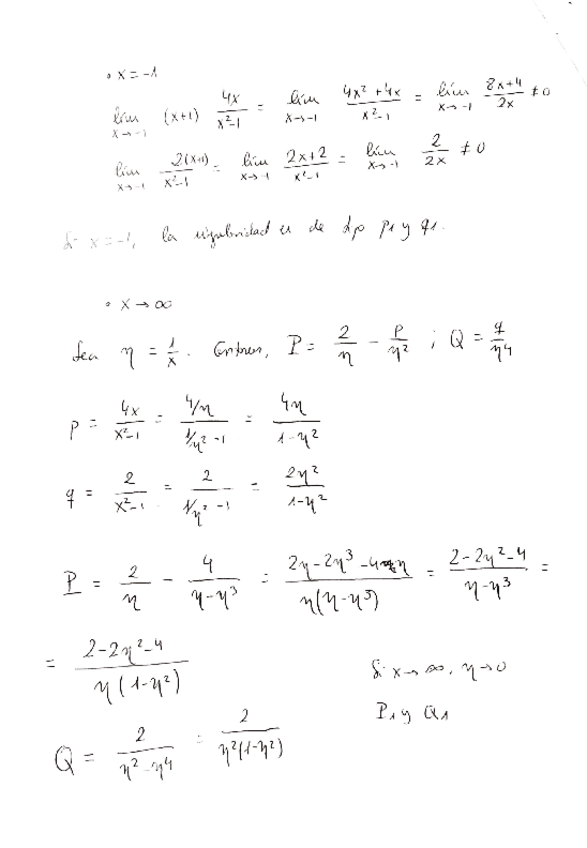 • x = -1
lím x→-1 (x+1) 4x/(x²-1) = lím x→-1 (4x²+4x)/(x²-1) = lím x→-1 (8x+4)/2x ≠ 0
lím x→-1 2(x+1)/(x²-1) = lím x→-1 (2x+2)/(x²-1) = lím x→-1 2/2x ≠ 0
Si x = -1, la singularidad es de tipo p1 y q1.
• x → ∞
Sea η = 1/x. Entonces, P = 2/η - p/η² ; Q = q/η⁴
p = 4x/(x²-1) = (4/η)/(1/η² -1) = 4η/(1-η²)
q = 2/(x²-1) = 2/(1/η² -1) = 2η²/(1-η²)
P = 2/η - 4/(η-η³) = (2η-2η³-4η)/(η(η-η³)) = (2-2η²-4)/(η-η³) =
= (2-2η²-4)/(η(1-η²))
Si x→∞, η→0
P1 y Q1
Q = 2/(η²-η⁴) = 2/(η²(1-η²))